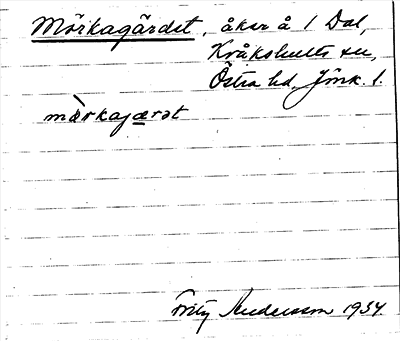 Mörkagärdet, åker å 1 Dal,
Kråkshults sn,
Östra hd, Jönk. l.
mὰrkajærət
Fritz Andersson 1934.